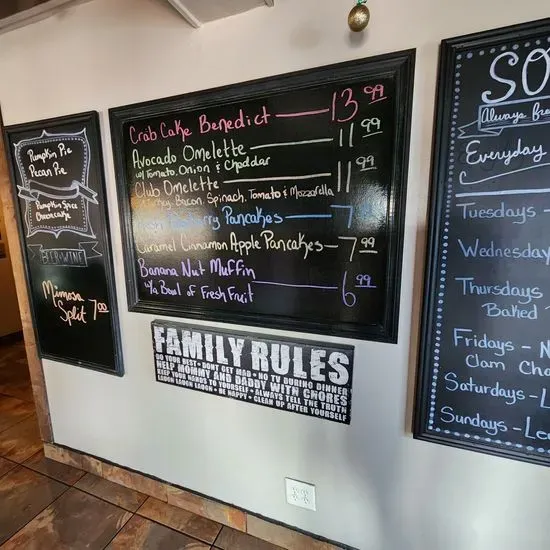 Pumpkin Pie
Pecan Pie
Pumpkin Spice
Cheesecake
BEER & WINE
Mimosa
Split 7.00
Crab Cake Benedict 13.99
Avocado Omelette 11.99
w/ Tomato, Onion & Cheddar
Club Omelette 11.99
Bacon, Spinach, Tomato & Mozzarella
Pancakes 7
Caramel Cinnamon Apple Pancakes 7.99
Banana Nut Muffin
w/a Bowl of Fresh Fruit 6.99
FAMILY RULES
DO YOUR BEST • DON'T GET MAD • DURING DINNER
HELP MOMMY AND DADDY WITH CHORES
KEEP YOUR HANDS TO YOURSELF • ALWAYS TELL THE TRUTH
LAUGH LAUGH LAUGH • BE HAPPY • CLEAN UP AFTER YOURSELF
SO
Always
Everyday
Tuesdays -
Wednesday
Thursdays
Baked
Fridays - N
Clam Cho
Saturdays - L
Sundays - Le